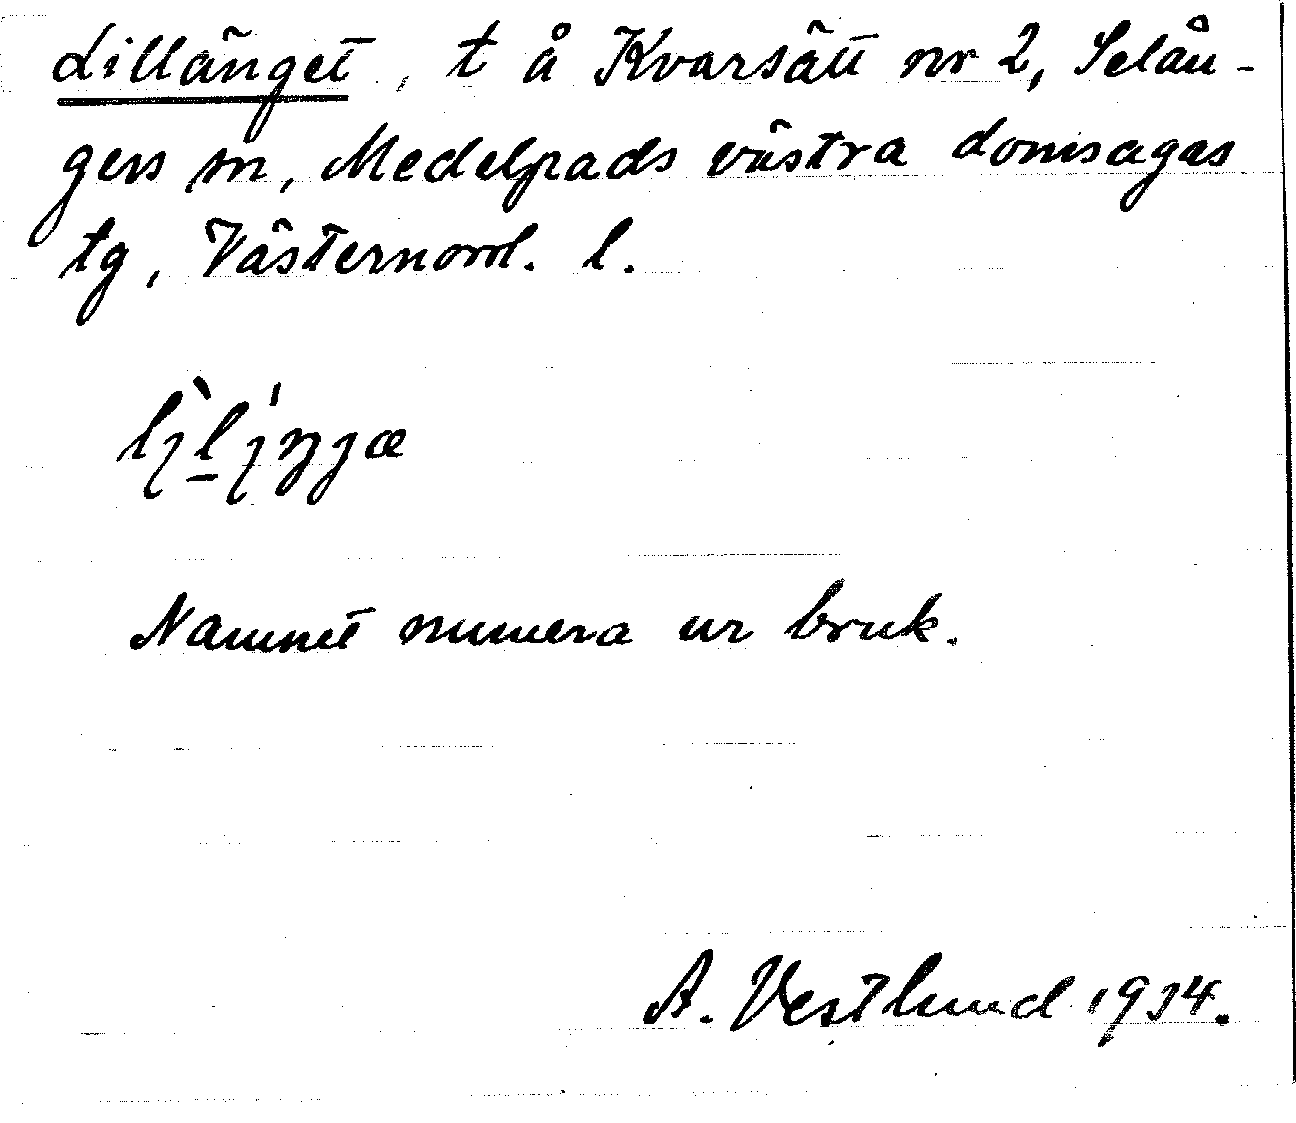 Lillänget, t å Kvarsätt nr 2, Selån-
gers sn, Medelpads västra domsagas
tg, Västernorrl. l.
Namnet numera ur bruk.
A. Vestlund 1934.